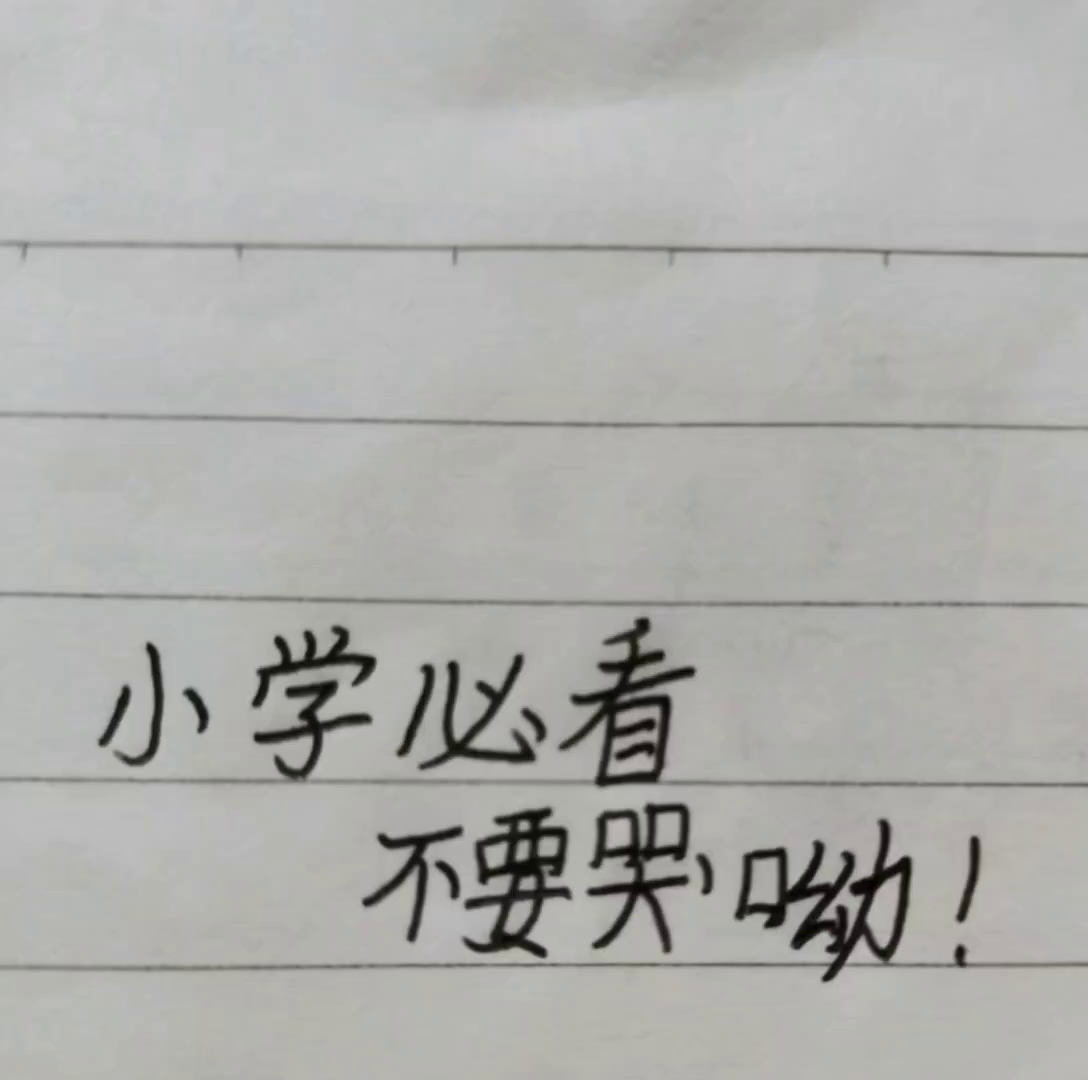 小学必看
不要哭呦！